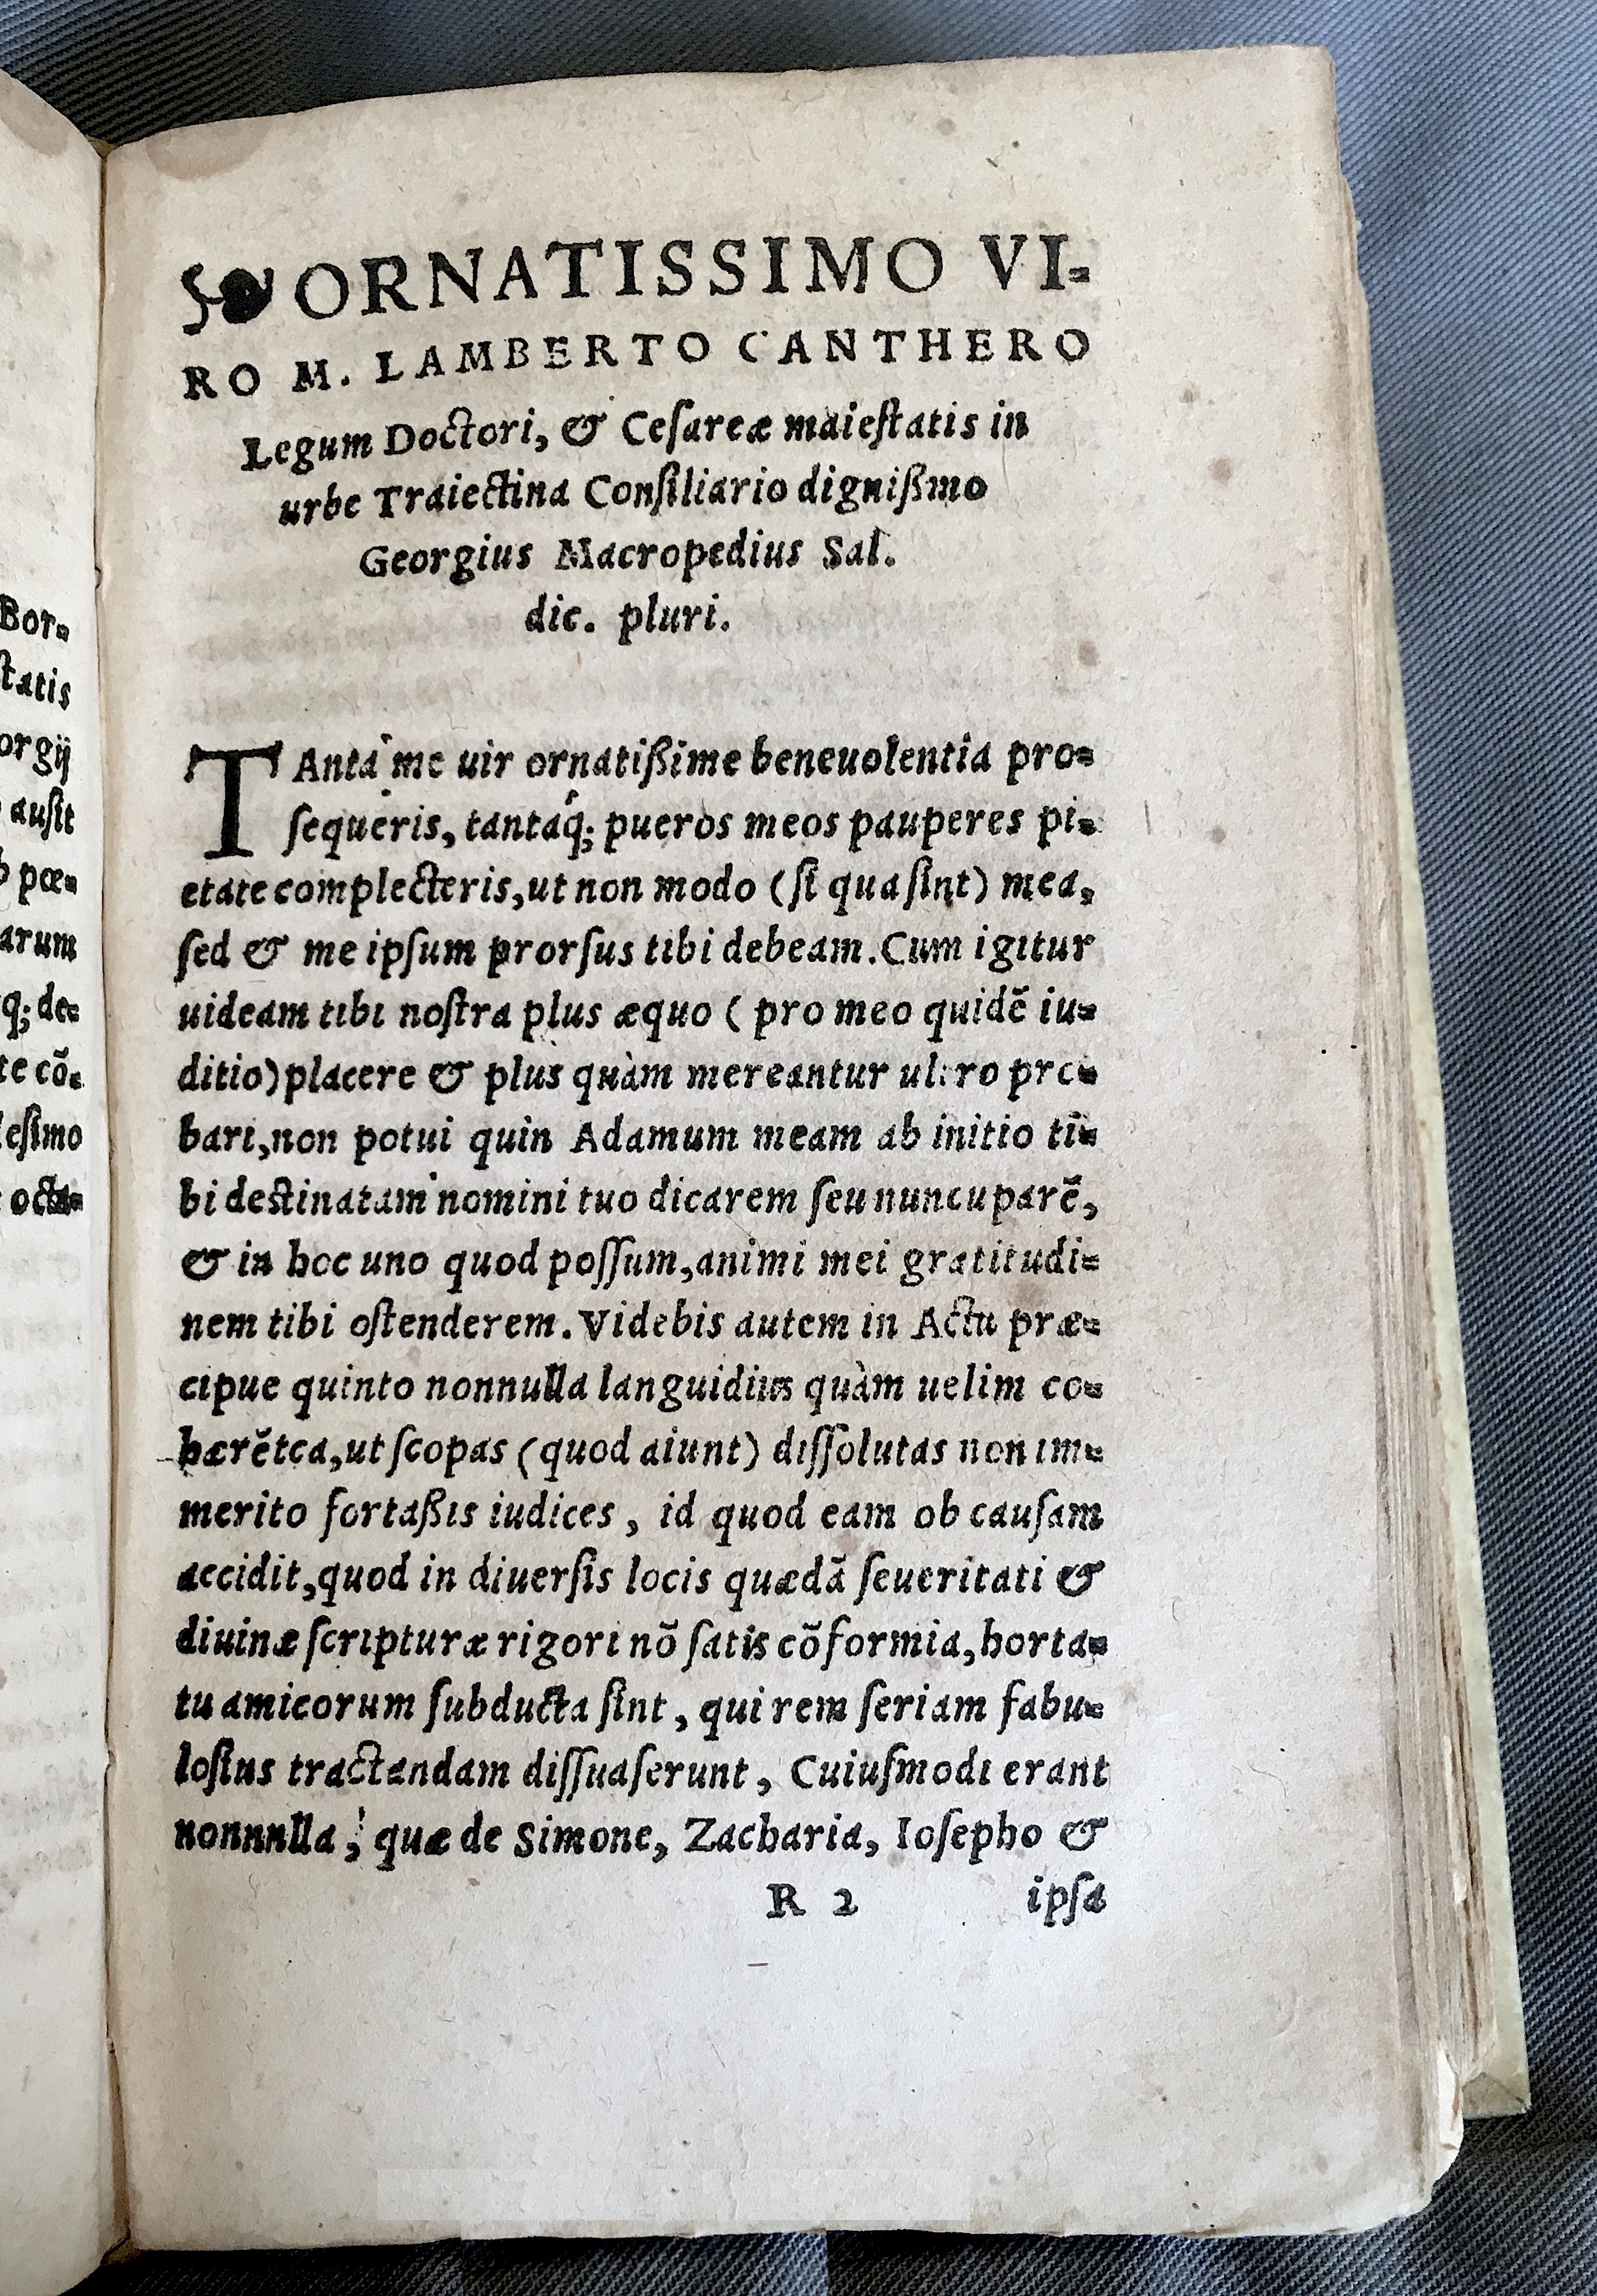 Bor=
statis
orgij
ausit
pœ=
arum
q; de=
te cõ=
esimo
octa=
❧ ORNATISSIMO VI=
RO M. LAMBERTO CANTHERO
Legum Doctori, & Cesareæ maiestatis in
urbe Traiectina Consiliario dignißimo
Georgius Macropedius Sal.
dic. pluri.
TAnta me uir ornatißime beneuolentia pro=
ſequeris, tantaq́; pueros meos pauperes pi=
etate complecteris, ut non modo (ſi qua ſint) mea,
ſed & me ipſum prorſus tibi debeam. Cum igitur
uideam tibi noſtra plus æquo ( pro meo quidẽ iu=
ditio) placere & plus quàm mereantur ultro pro=
bari, non potui quin Adamum meam ab initio ti=
bi deſtinatam nomini tuo dicarem ſeu nuncuparẽ,
& in hoc uno quod poſſum, animi mei gratitudi=
nem tibi oſtenderem. Videbis autem in Actu præ=
cipue quinto nonnulla languidius quàm uelim co=
hærẽtea, ut ſcopas (quod aiunt) diſſolutas non im=
merito fortaßis iudices, id quod eam ob cauſam
accidit, quod in diuerſis locis quædã ſeueritati &
diuinæ ſcripturæ rigori nõ ſatis cõformia, horta=
tu amicorum ſubducta ſint, qui rem ſeriam fabu=
loſius tractandam diſſuaſerunt, Cuiuſmodi erant
nonnnlla, quæ de Simone, Zacharia, Ioſepho &
R 2 ipſa